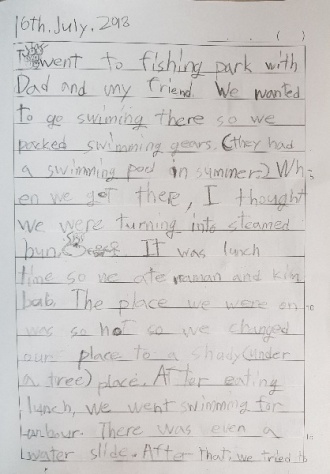 16th. July. 2018
went to fishing park with
Dad and my friend. We wanted
to go swiming there so we
packed swimming gears. (they had
a swimming pool in summer.) Wh-
en we got there, I thought
we were turning into steamed
bun. It was lunch
time so we ate raman and kim
bab. The place we were on
was so hot so we changed
our place to a shady (under
a tree) place. After eating
lunch, we went swimming for
an hour. There was even a
water slide. After that, we tried to